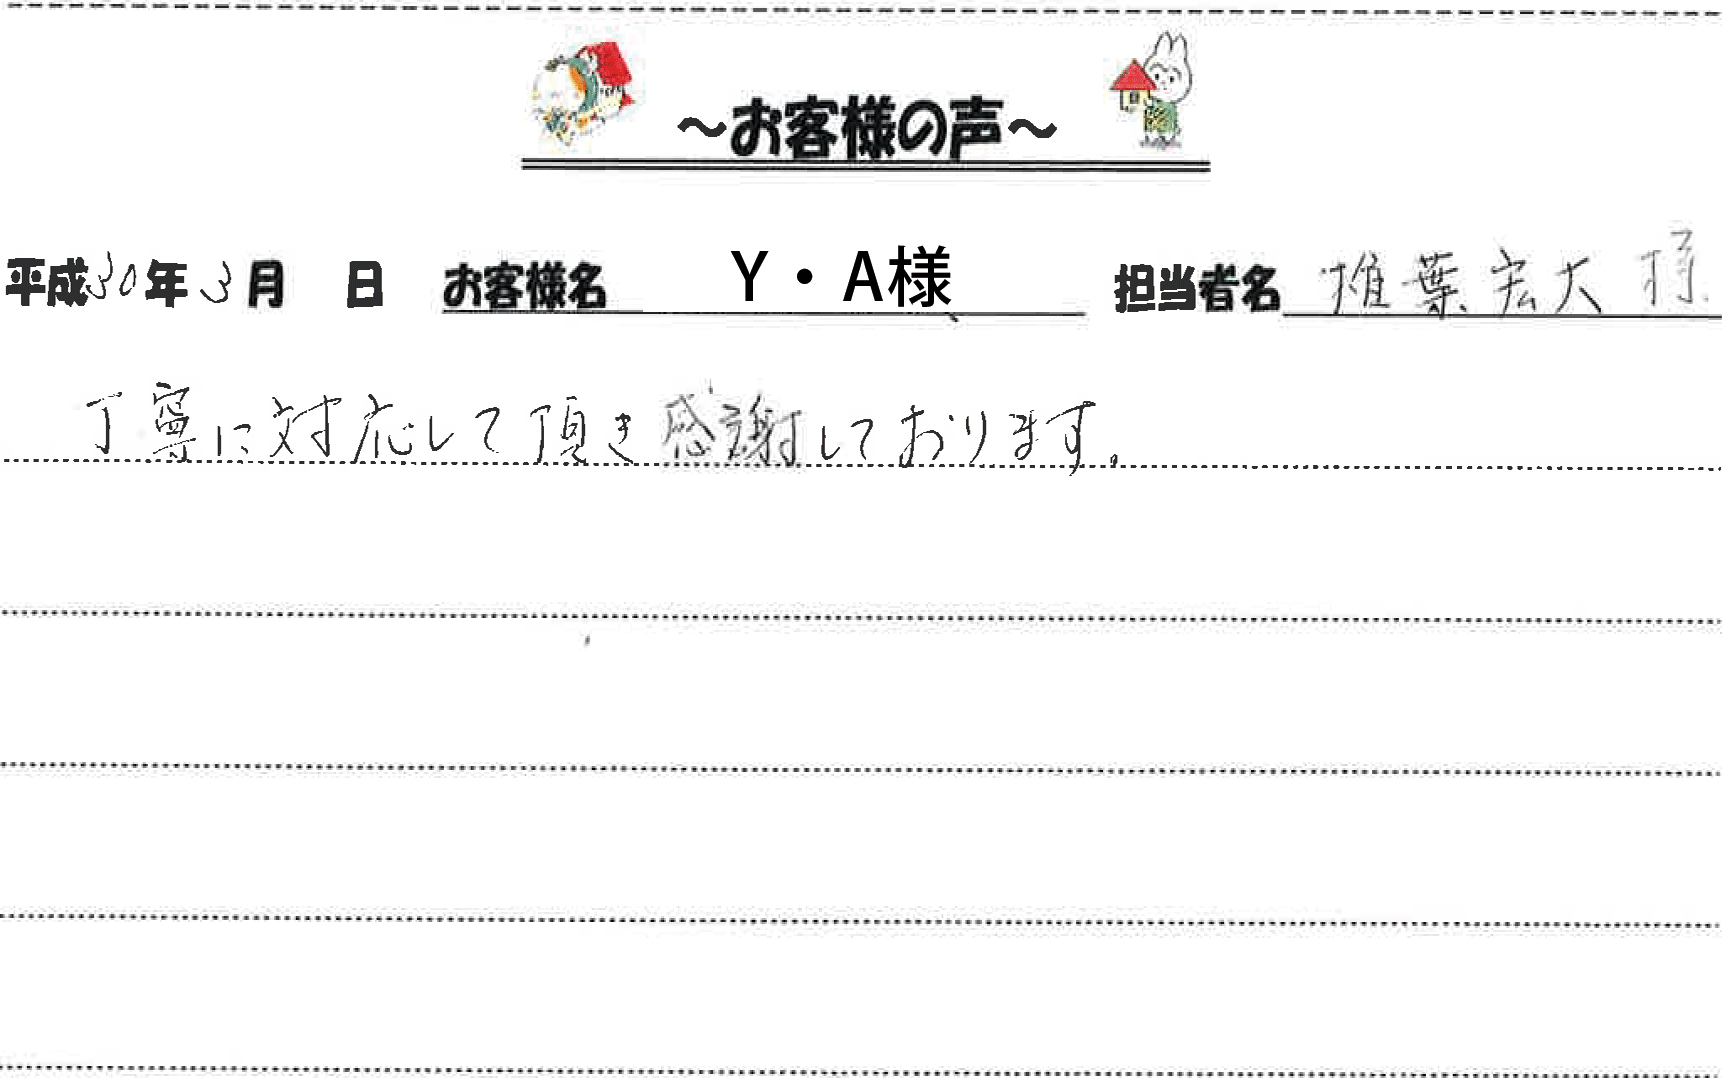 ～お客様の声～
平成30年3月 日 お客様名 Y・A様 担当者名 椎葉宏大 様
丁寧に対応して頂き感謝しております。